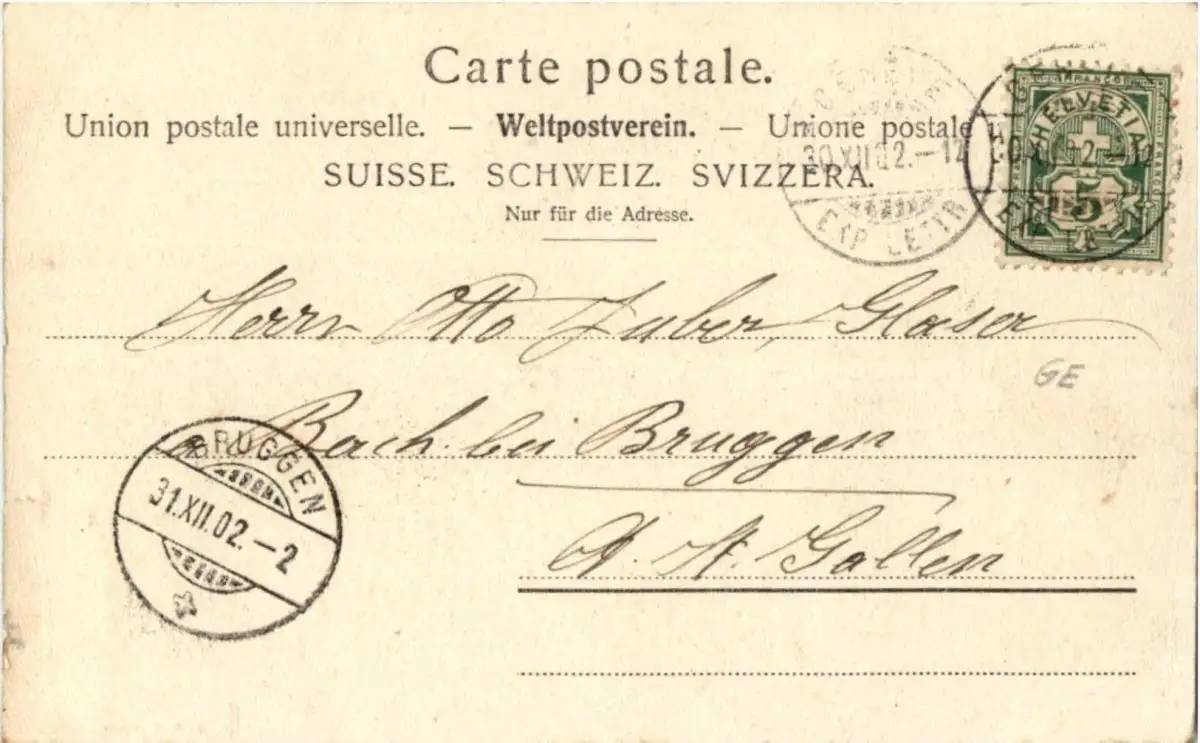 Carte postale.
Union postale universelle. — Weltpostverein. — Unione postale u
SUISSE. SCHWEIZ. SVIZZERA.
Nur für die Adresse.
GENÈVE
30.XII.02.–12
EXP. LETTR
FRANCO
HELVETIA
FRANCO
5
Herrn Otto Zuber, Glaser
GE
Bach bei Bruggen
BRUGGEN
31.XII.02.–2
St. Gallen